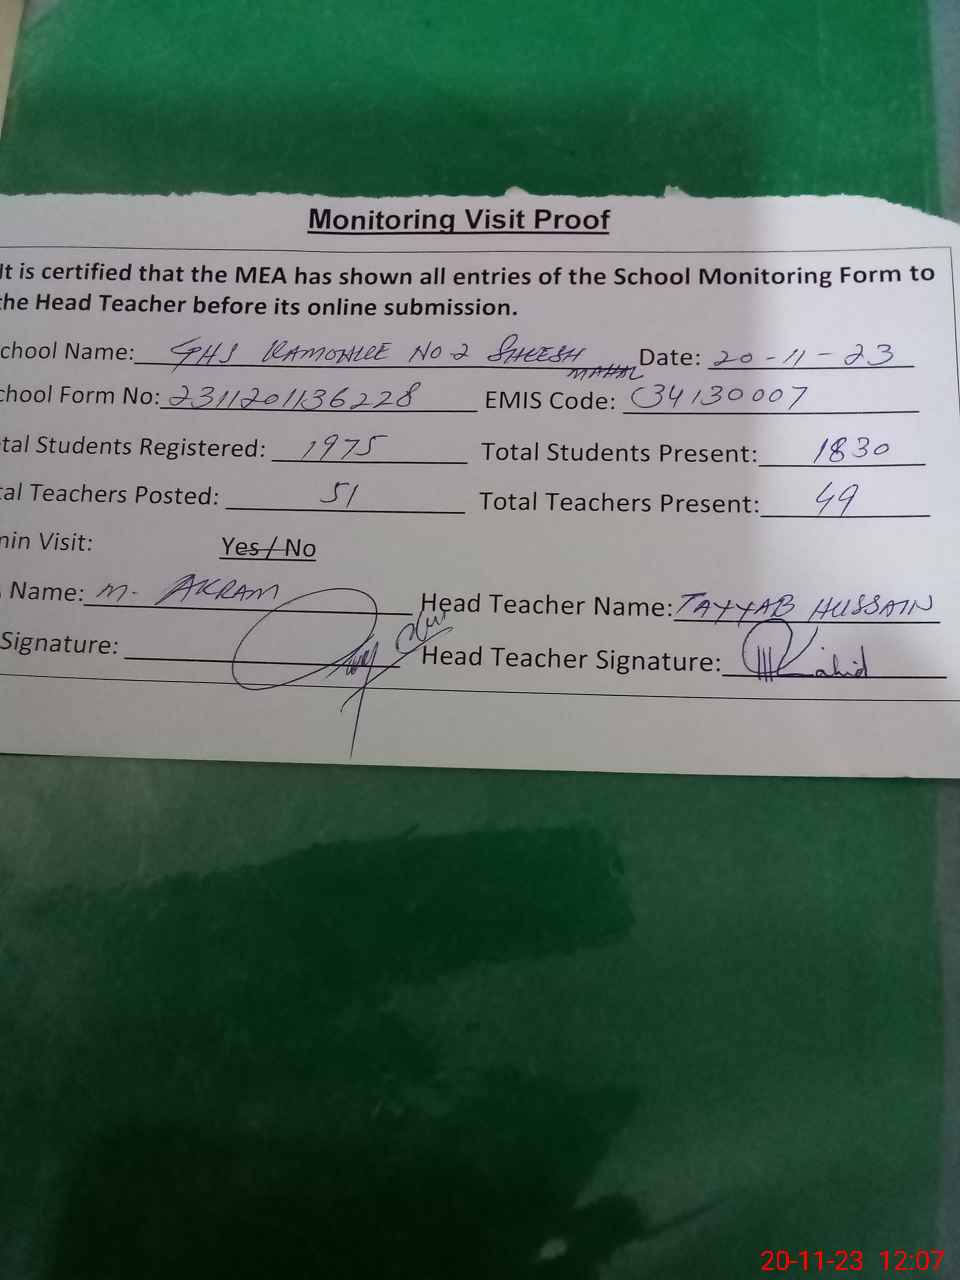 Monitoring Visit Proof
It is certified that the MEA has shown all entries of the School Monitoring Form to
the Head Teacher before its online submission.
chool Name: GHS No 2 SHEESH MAHAL Date: 20-11-23
chool Form No: 2311201136228 EMIS Code: 34130007
tal Students Registered: 1975 Total Students Present: 1830
al Teachers Posted: 51 Total Teachers Present: 49
min Visit: Yes / No
Name: M. AKRAM Head Teacher Name: TAYYAB HUSSAIN
Signature: Head Teacher Signature:
20-11-23 12:07